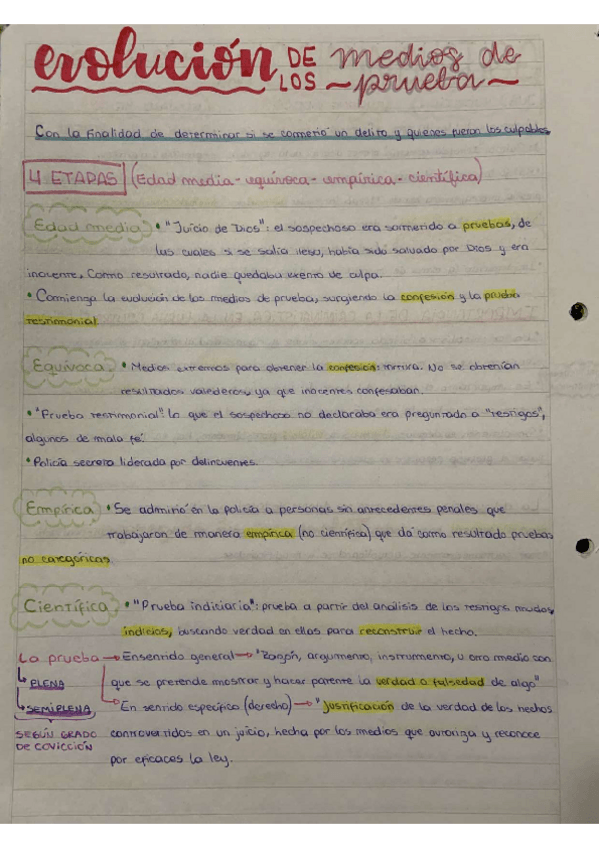 evolución DE LOS medios de prueba
Con la finalidad de determinar si se cometió un delito y quienes fueron los culpables
4 ETAPAS (Edad media - equívoca - empírica - científica)
Edad media • "Juicio de Dios": el sospechoso era sometido a pruebas, de
las cuales si se salía ileso, había sido salvado por Dios y era
inocente. Como resultado, nadie quedaba exento de culpa.
• Comienza la evolución de los medios de prueba, surgiendo la confesión y la prueba
testimonial.
Equívoca • Medios extremos para obtener la confesión: tortura. No se obtenían
resultados valederos, ya que inocentes confesaban.
• "Prueba testimonial": lo que el sospechoso no declaraba era preguntado a "testigos",
algunos de mala fe.
• Policía secreta liderada por delincuentes.
Empírica • Se admitió en la policía a personas sin antecedentes penales que
trabajaron de manera empírica (no científica) que da como resultado pruebas
no categóricas.
Científica • "Prueba indiciaria": prueba a partir del análisis de los testigos mudos,
indicios, buscando verdad en ellos para reconstruir el hecho.
La prueba → En sentido general → "Razón, argumento, instrumento, u otro medio con
que se pretende mostrar y hacer patente la verdad o falsedad de algo"
PLENA
SEMIPLENA
SEGÚN GRADO
DE COVICCIÓN
En sentido específico (derecho) → "Justificación de la verdad de los hechos
controvertidos en un juicio, hecha por los medios que autoriza y reconoce
por eficaces la ley.